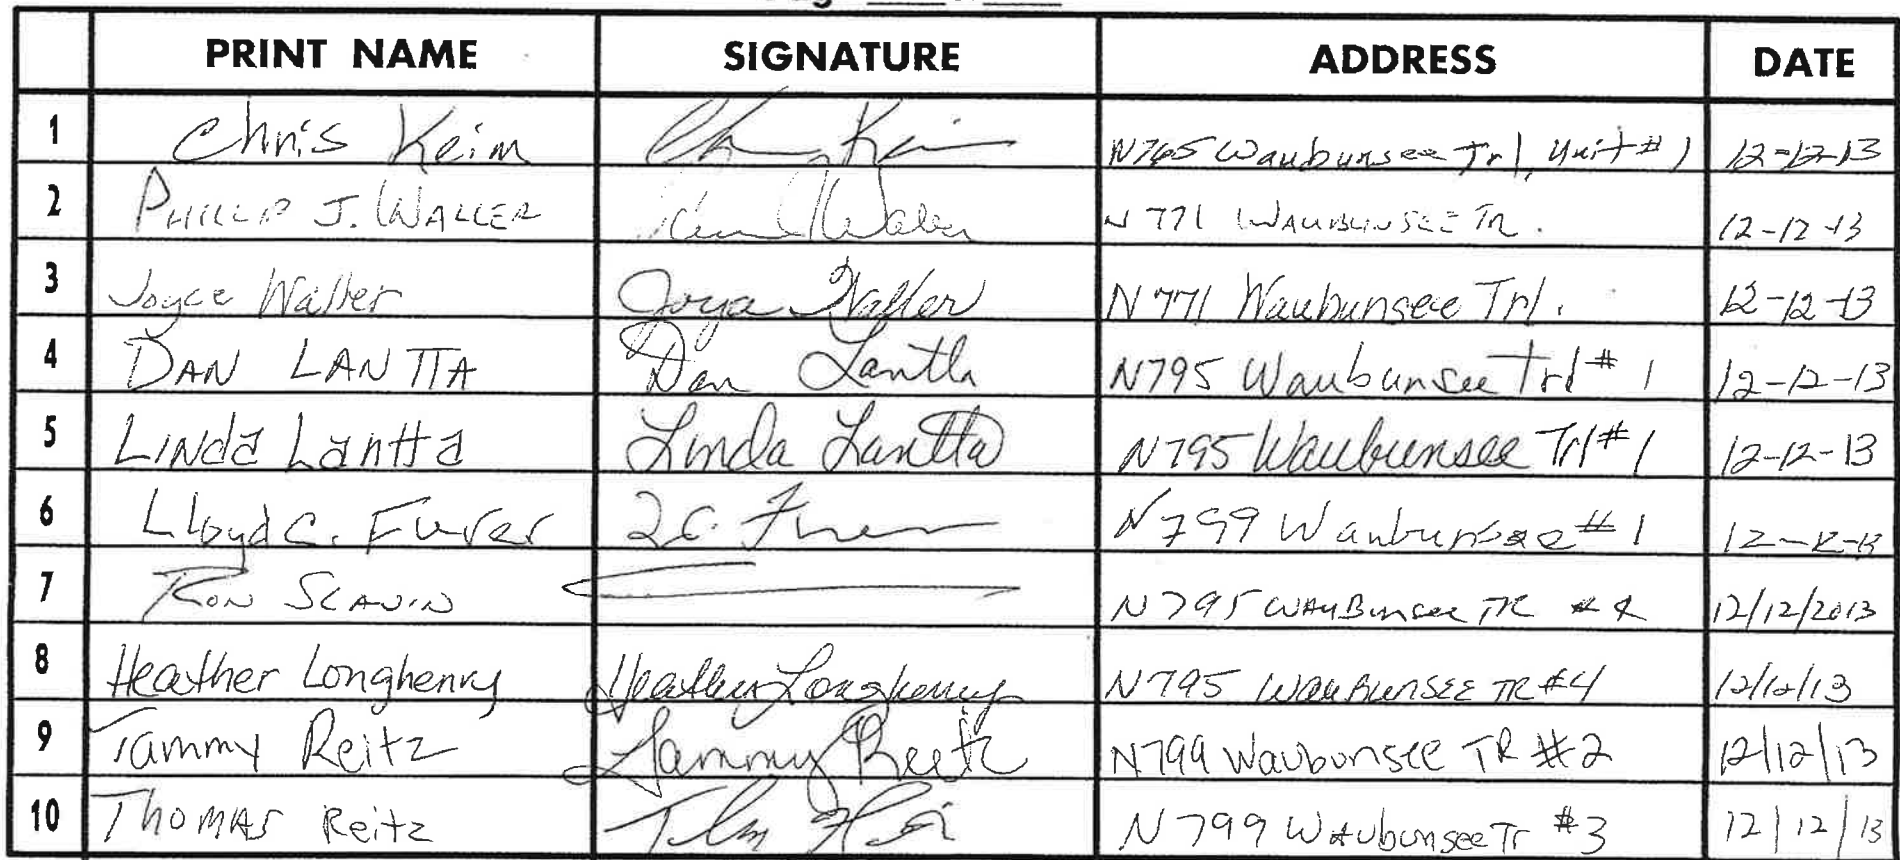 PRINT NAME SIGNATURE ADDRESS DATE
1 Chris Keim Chris Keim N765 Waubunsee Trl, Unit #1 12-12-13
2 PHILLIP J. WALLER Waller N 771 WAUBUNSEE TR. 12-12-13
3 Joyce Waller Joyce Waller N 771 Waubunsee Trl. 12-12-13
4 DAN LANTTA Dan Lantta N795 Waubunsee Trl # 1 12-12-13
5 LINda Lantta Linda Lantta N795 Waubunsee Trl #1 12-12-13
6 Lloyd C. Furer LC. Furer N799 Waubunsee #1 12-12-13
7 RON SLAVIN N795 WAUBunsee TR 12/12/2013
8 Heather Longhenry Heather Longhenry N795 WAUBUNSEE TR #4 12/12/13
9 Tammy Reitz Tammy Reitz N799 Waubunsee TR #2 12/12/13
10 THOMAS Reitz N799 WAubunsee Tr #3 12/12/13